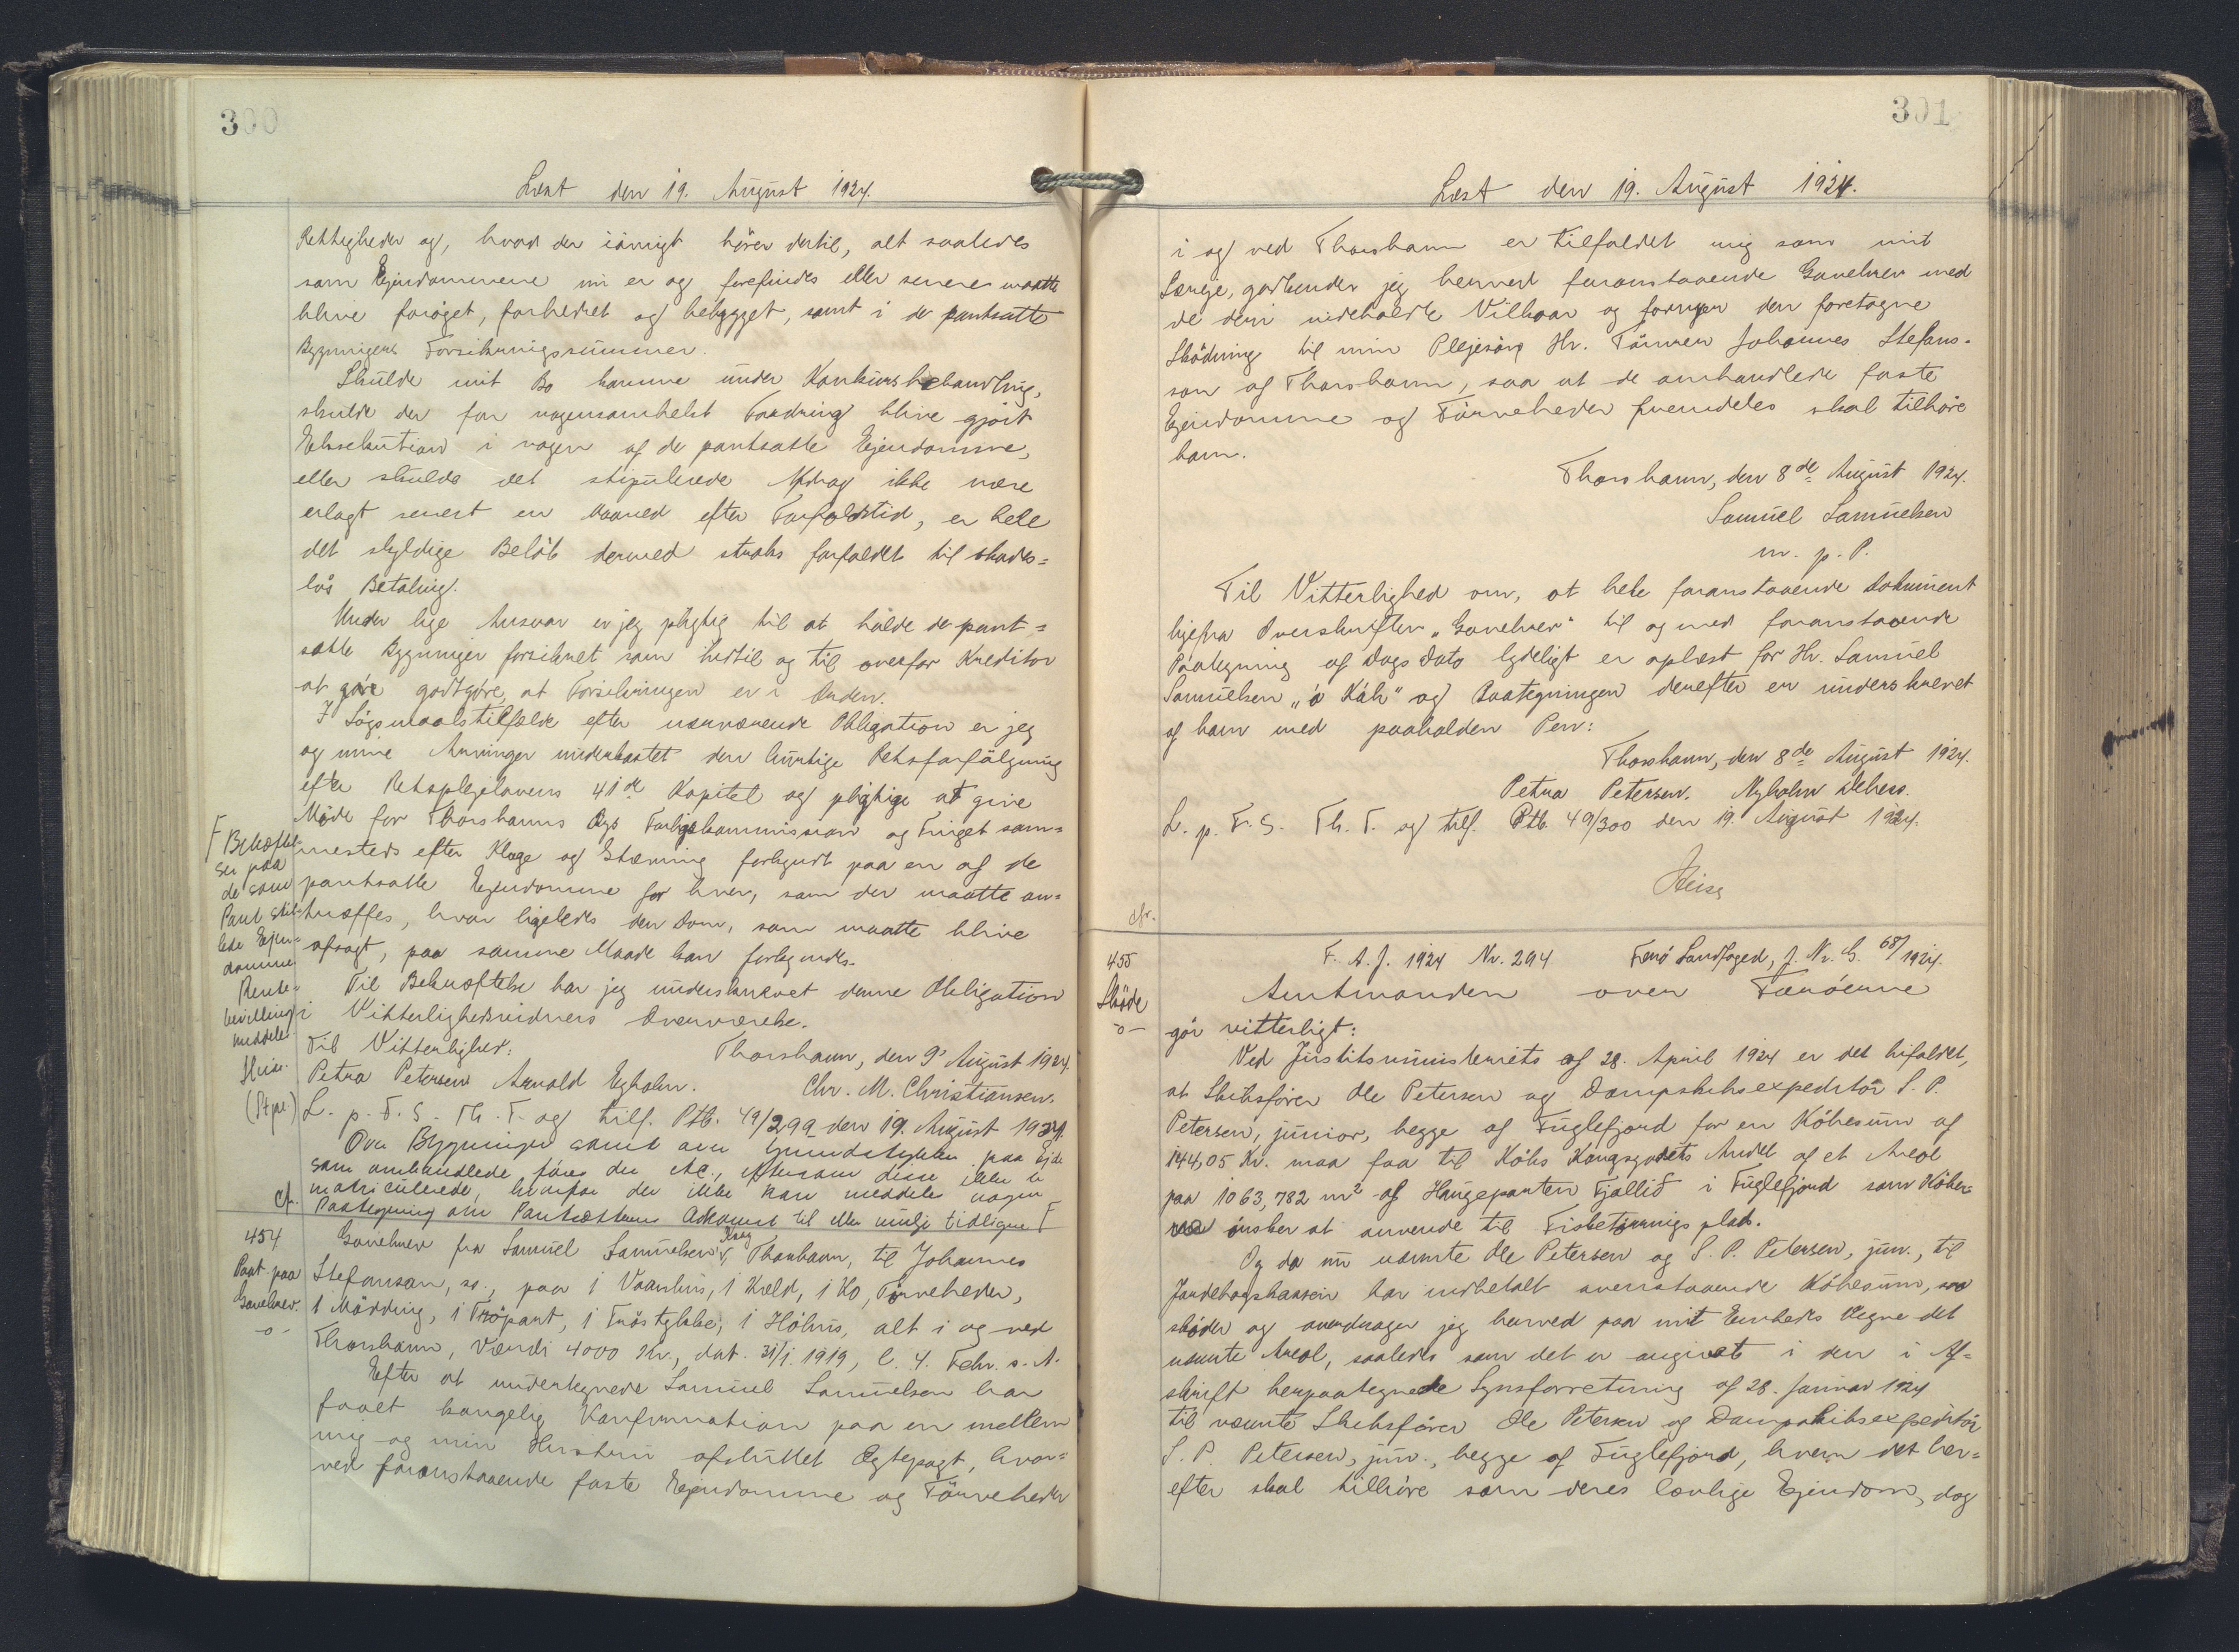 300
Læst den 19. August 1924.
Rettigheder og, hvad der iövrigt hörer dertil, alt saaledes
som Ejendommene nu er og forefindes eller senere maatte
blive foröget, forbedret og bebygget, samt i de pantsatte
Bygningers Forsikringssummer.
Skulde mit Bo komme under Konkursbehandling,
skulde der for nogensomhelst Fordring blive gjort
Eksekution i nogen af de pantsatte Ejendomme,
eller skulde det stipulerede Afdrag ikke være
erlagt senest en Maaned efter Forfaldstid, er hele
det skyldige Belöb dermed straks forfaldet til skades=
lös Betaling.
Under lige Ansvar er jeg pligtig til at holde de pant=
satte Bygninger forsikret som hidtil og til overfor Kreditor
at göre godtgöre at Forsikringen er i Orden.
I Sögsmaalstilfælde efter nærværende Obligation er jeg
og mine Arvinger underkastet den hurtige Retsforfölgning
efter Retsplejelovens 41de Kapitel og pligtige at give
Möde for Thorshavns Bys Forligskommission og Tinget sam=
mesteds efter Klage og Stævning forkyndt paa en af de
pantsatte Ejendomme for hver, som der maatte an=
træffes, hvor ligeledes den Dom, som maatte blive
afsagt, paa samme Maade kan forkyndes.
Til Bekræftelse har jeg underskrevet denne Obligation
i Vitterlighedsvidners Overværelse.
Til Vitterlighed:
Thorshavn, den 9' August 1924.
Petra Petersen Arnold Egholm. Chr. M. Christiansen.
L. p. F. S. Th. T. og tilf. Ptb. 49/299 den 19. August 1924.
Over Bygninger samt over Grundstykker paa Ejde
som omhandlede föres der etc., eftersom disse ikke er
matriculerede, hvorfor der ikke kan meddeles nogen
cf. Paategning om Pantsætterens Adkomst til eller mulige tidligere F
F Behæftel-
ser paa
de som
Pant stil-
lede Ejen=
domme
Rente=
bevilling
meddelt.
Heise
(Stpl.)
454
Pant paa
Gavebrev.
-o-
Gavebrev fra Samuel Samuelsen, Thorshavn, til Johannes
Stefansson, ss., paa 1 Vaanhus, 1 Kveld, 1 Ko, Törveheder,
1 Mödding, 1 Tröpart, 1 Tröstykke, 1 Höhus, alt i og ved
Thorshavn, Værdi 4000 Kr., dat. 31/1. 1919, l. 4. Febr. s. A.
Efter at undertegnede Samuel Samuelsen har
faaet kongelig Konfirmation paa en mellem
mig og min Hustru afsluttet Ægtepagt, hvor=
ved foranstaaende faste Ejendomme og Törveheder
301
Læst den 19. August 1924.
i og ved Thorshavn er tilfaldet mig som mit
Særeje, godkender jeg herved foranstaaende Gavebrev med
de deri indeholdte Vilkaar og fornyer den foretagne
Sködning til min Plejesön Hr. Tömrer Johannes Stefans-
son af Thorshavn, saa at de omhandlede faste
Ejendomme og Törveheder fremdeles skal tilhöre
ham.
Thorshavn, den 8de August 1924.
Samuel Samuelsen
m. p. P.
Til Vitterlighed om, at hele foranstaaende Dokument
ligefra Overskriften „Gavebrev" til og med foranstaaende
Paategning af Dags Dato lydeligt er oplæst for Hr. Samuel
Samuelsen „á Kák" og Paategningen derefter er underskrevet
af ham med paaholden Pen:
Thorshavn, den 8de August 1924.
Petra Petersen. Nyholm Debess.
L. p. F. S. Th. T. og tilf. Ptb. 49/300 den 19. August 1924.
Heise
cfr.
455
Sköde
-o-
F. A. J. 1924 Nr. 294 Færö Landfoged, J. Nr. G. 68/1924.
Amtmanden over Færöerne
gör vitterligt:
Ved Justitsministeriets af 28. April 1924 er det bifaldet,
at Skibsförer Ole Petersen og Dampskibsexpeditör S. P.
Petersen, junior, begge af Fuglefjord for en Köbesum af
144,05 Kr. maa faa til Köbs Kongsgodsets Andel af et Areal
paa 1063,782 m² af Haugeparten Fjallið i Fuglefjord som Köber=
ne önsker at anvende til Fisketörringsplads.
Og da nu nævnte Ole Petersen og S. P. Petersen, jun., til
Jordebogskassen har indbetalt ovenstaaende Köbesum, saa
sköder og overdrager jeg herved paa mit Embeds Vegne det
nævnte Areal, saaledes som det er angivet i den i Af=
skrift herpaategnede Synsforretning af 28. Januar 1924
til nævnte Skibsförer Ole Petersen og Dampskibsexpeditör
S. P. Petersen, jun., begge af Fuglefjord, hvem det her=
efter skal tilhöre som deres lovlige Ejendom, dog